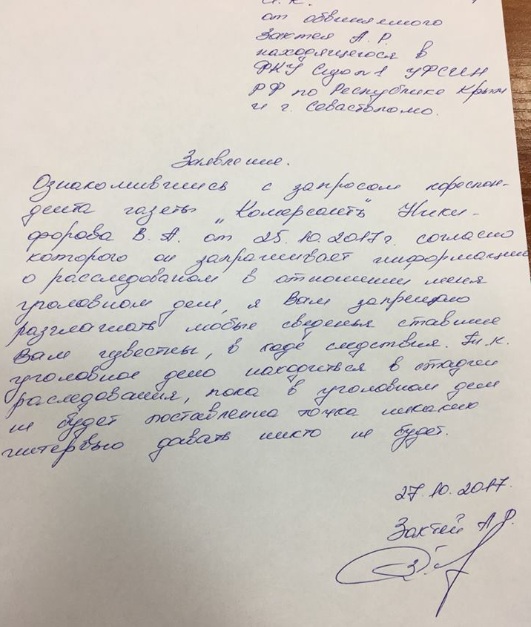 от обвиняемого
Зактея А. Р.
находящегося в
ФКУ Сизо №1 УФСИН
РФ по Республике Крым
и г. Севастополю.
Заявление.
Ознакомившись с запросом кореспон-
дента газеты „Комерсантъ" Ники-
форова В. А. от 25.10.2017г. согласно
которого он запрашивает информацию
о расследованом в отношении меня
уголовном деле, я Вам запрещаю
разглашать любые сведенья ставшие
Вам известны, в ходе следствия. Т.к.
уголовное дело находиться в стадии
раследования, пока в уголовном деле
не будет поставленна точка никаких
интервью давать никто не будет.
27.10.2017.
Зактей А. Р.